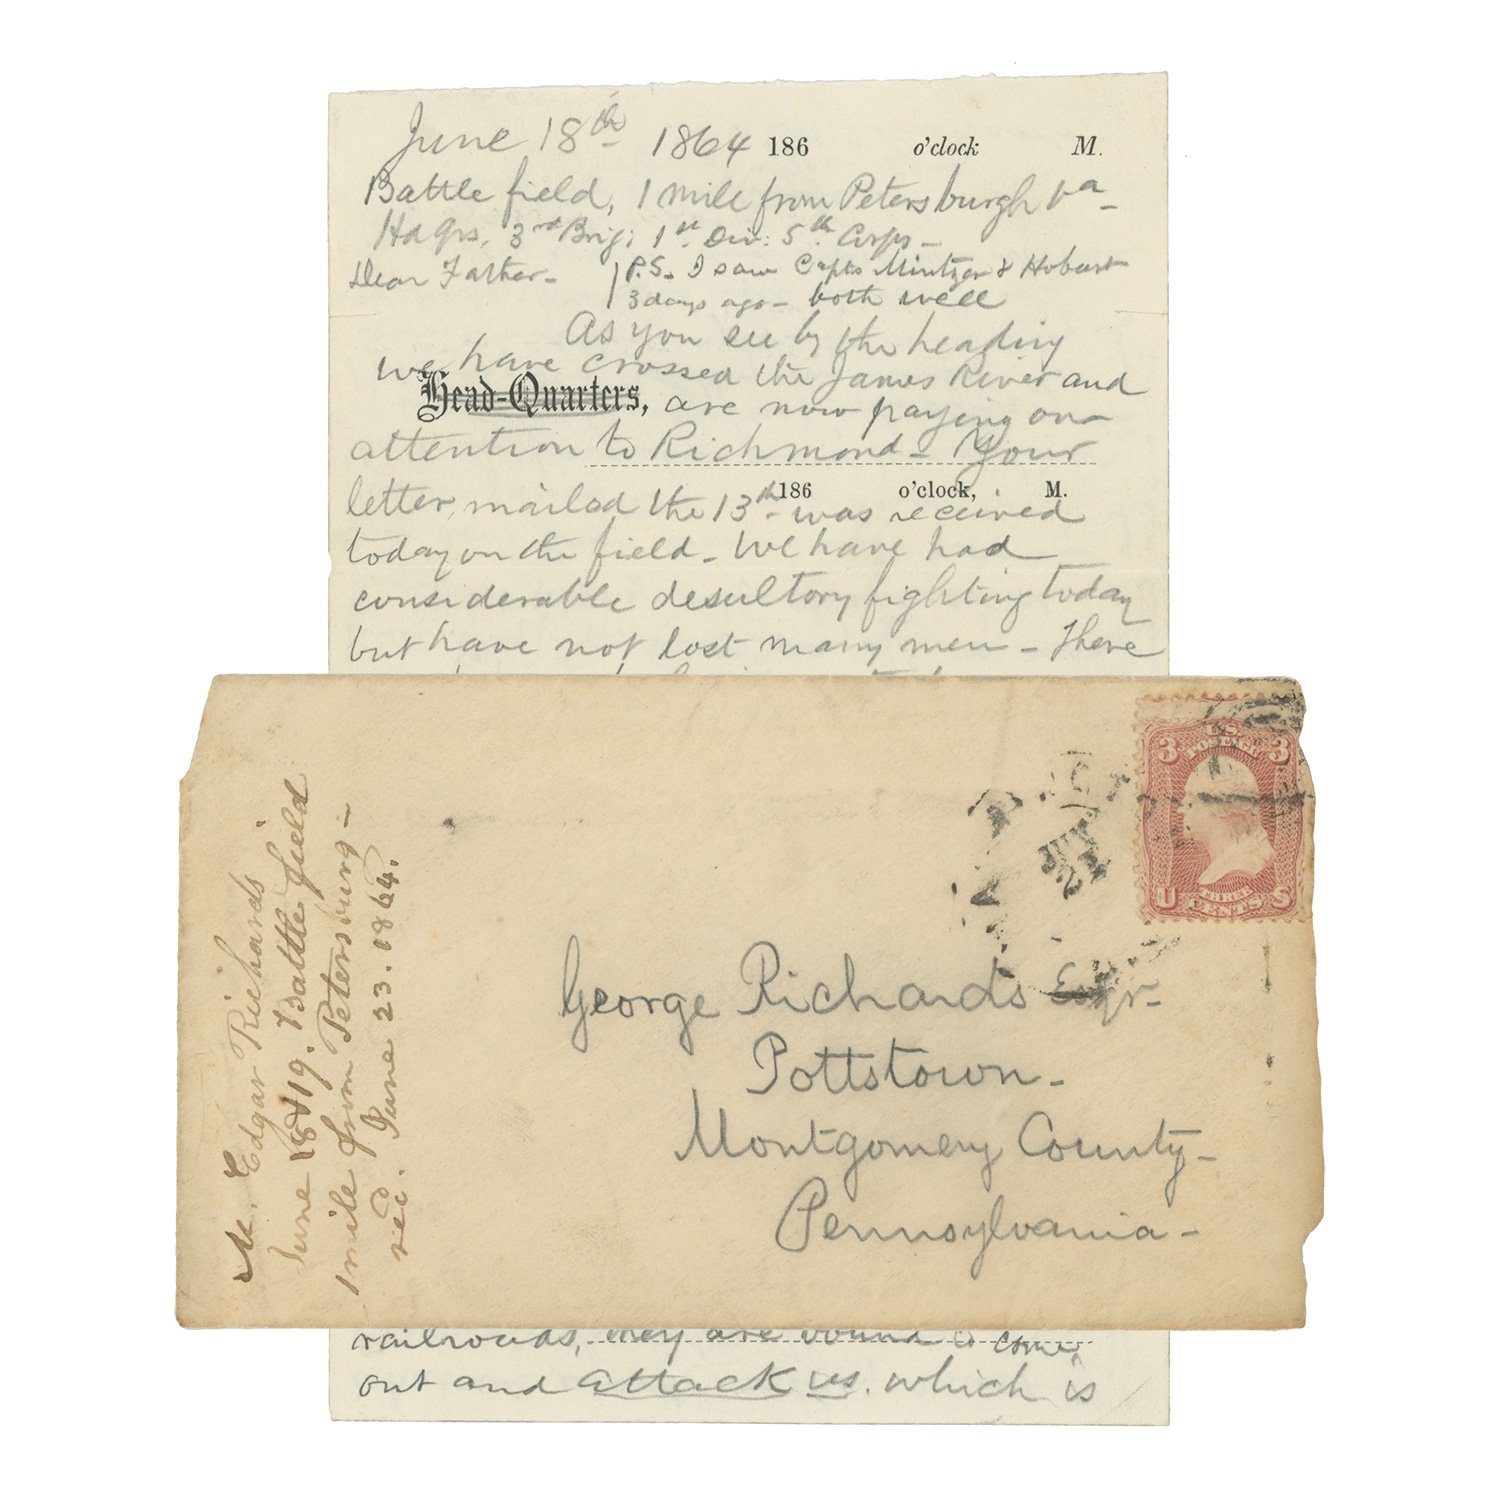 June 18th 1864 186 o'clock M.
Battle field, 1 mile from Petersburgh Va -
Hd Qrs, 3rd Brig: 1st Div: 5th Corps -
Dear Father -
P.S. - I saw Capts Mintzer & Hobart
3 days ago - both well
As you see by the heading
we have crossed the James River and
Head-Quarters, are now paying our
attention to Richmond - Your
186 o'clock, M.
letter, mailed the 13th was received
today on the field - We have had
considerable desultory fighting today
but have not lost many men - There
U.S.
POSTAGE
3 3
U THREE S
CENTS
George Richards Esqr -
Pottstown -
Montgomery County -
Pennsylvania -
M. Edgar Richards
June 18 & 19. Battle field
1 mile from Petersburg -
rec. June 23. 1864.
railroads, they are bound to come
out and attack us. which is